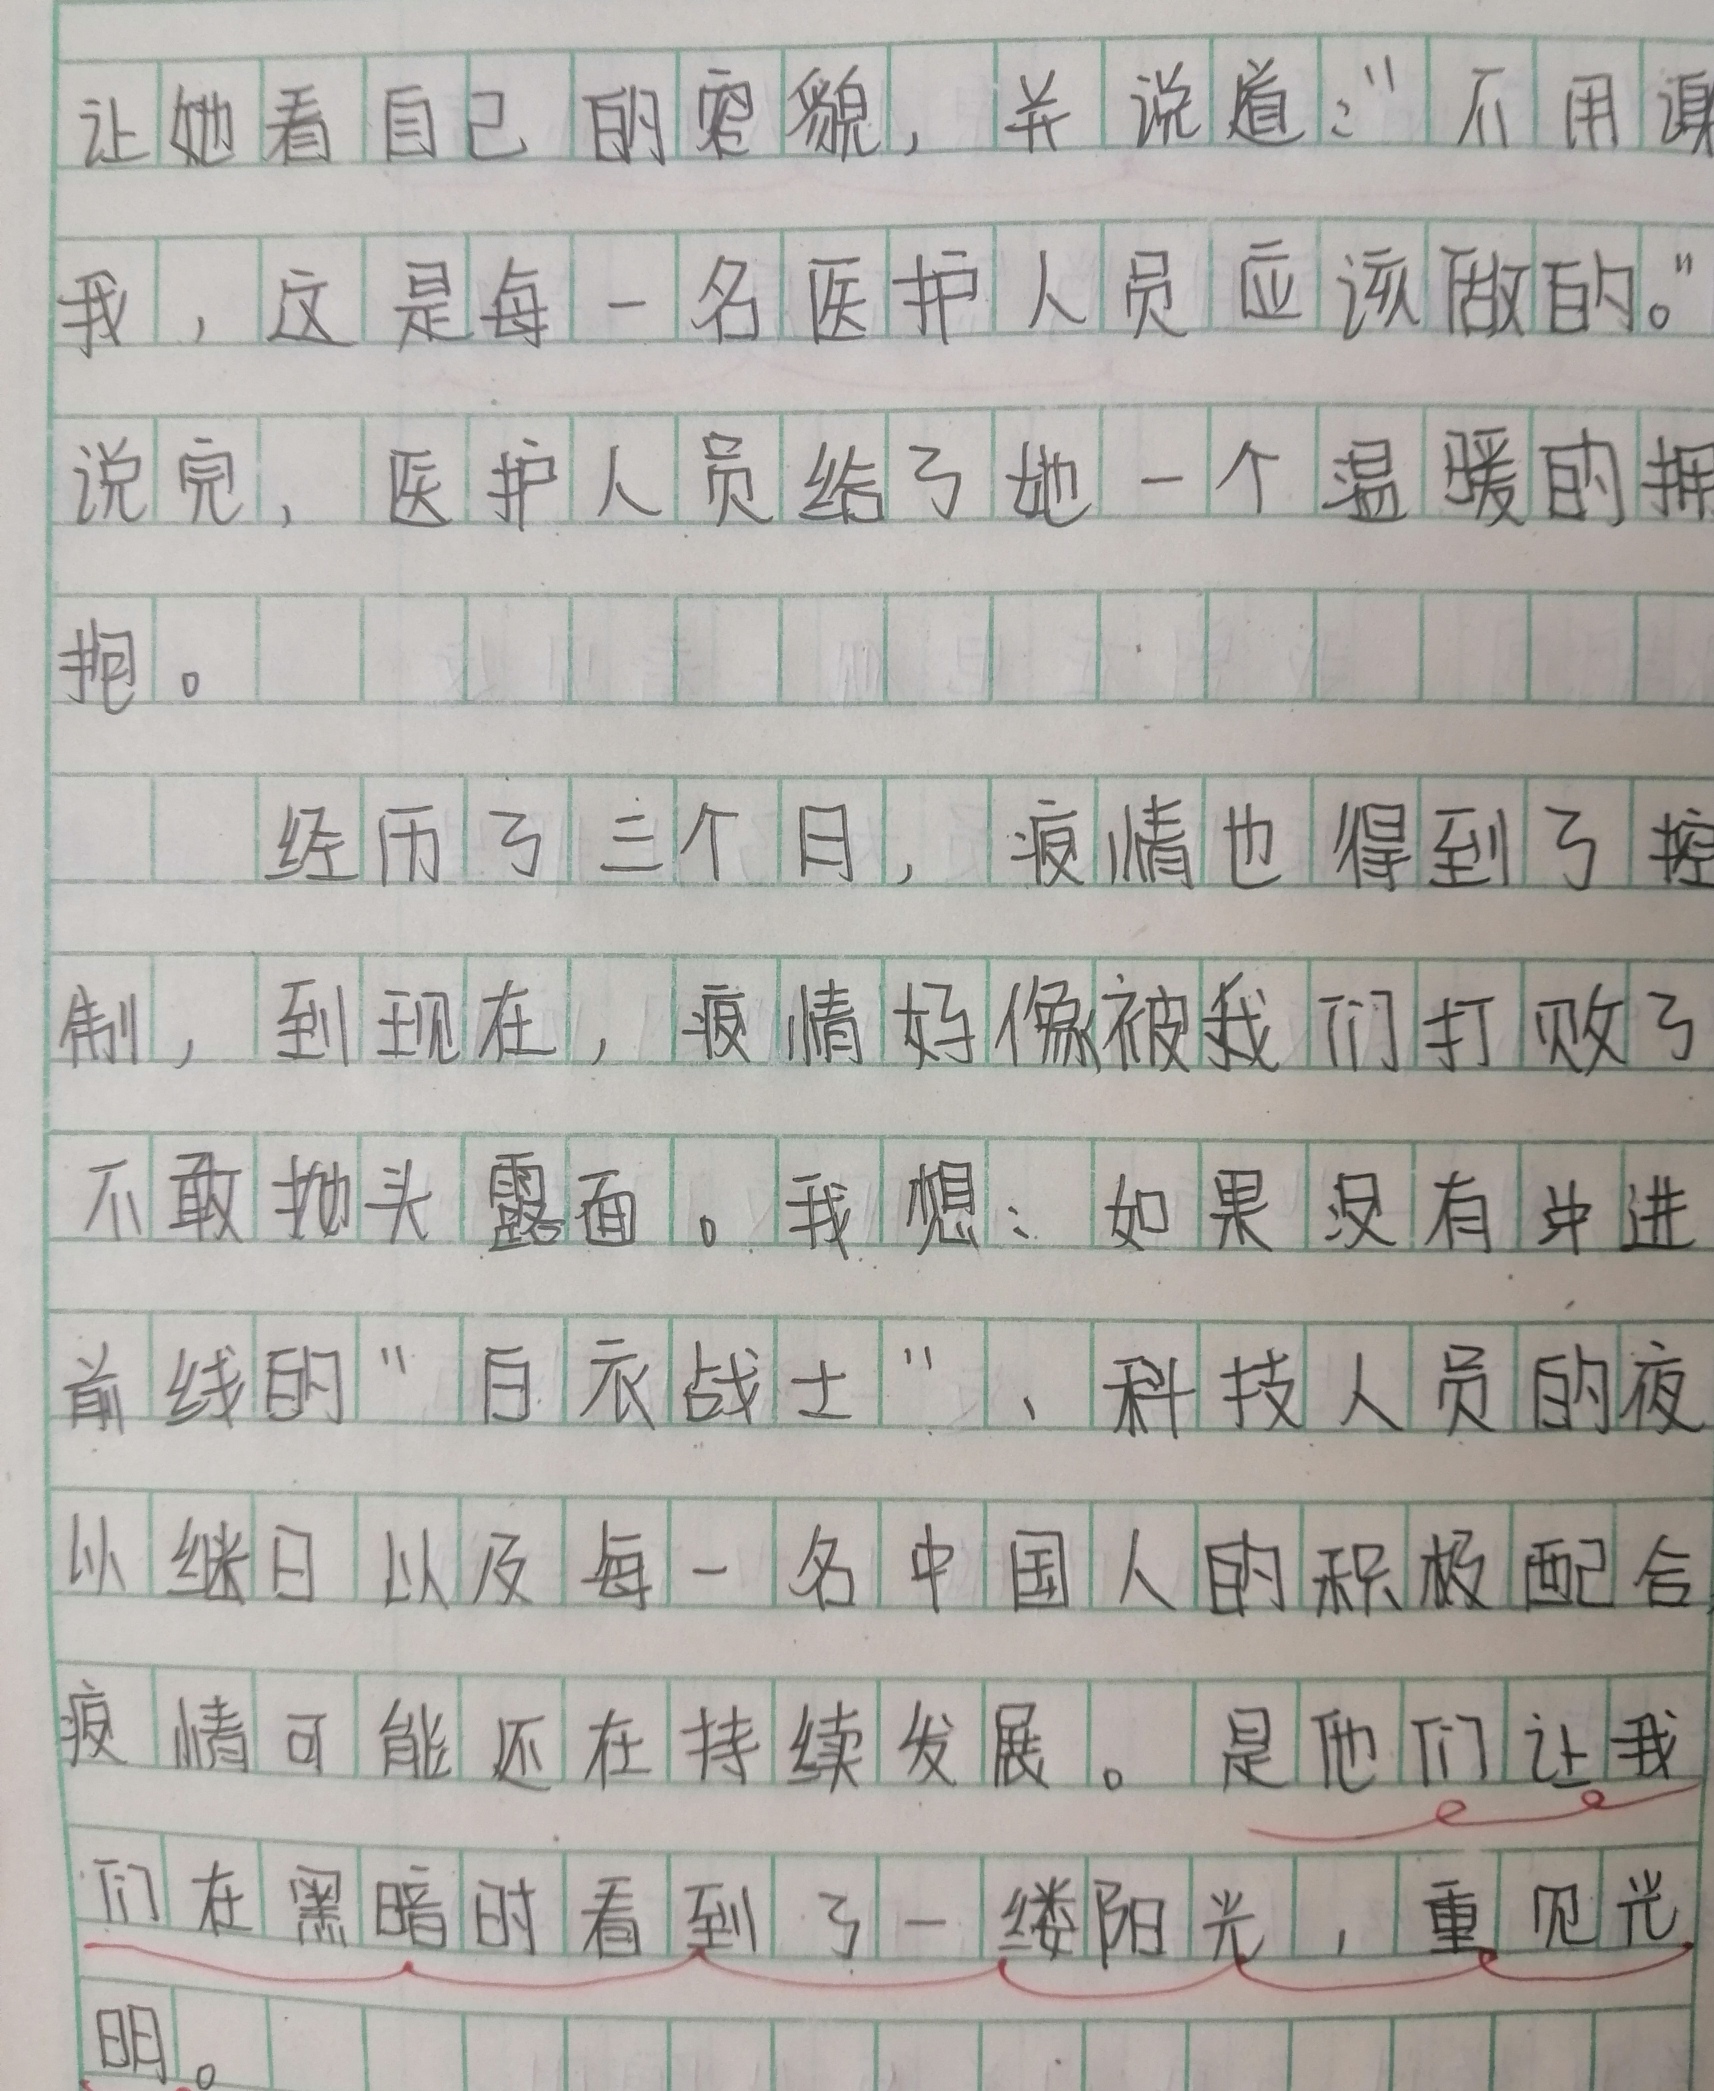 让她看自己的容貌，并说道：“不用谢
我，这是每一名医护人员应该做的。”
说完，医护人员给了她一个温暖的拥
抱。
经历了三个月，疫情也得到了控
制，到现在，疫情好像被我们打败了
不敢抛头露面。我想：如果没有冲进
前线的“白衣战士”、科技人员的夜
以继日以及每一名中国人的积极配合，
疫情可能还在持续发展。是他们让我
们在黑暗时看到了一缕阳光，重见光
明。